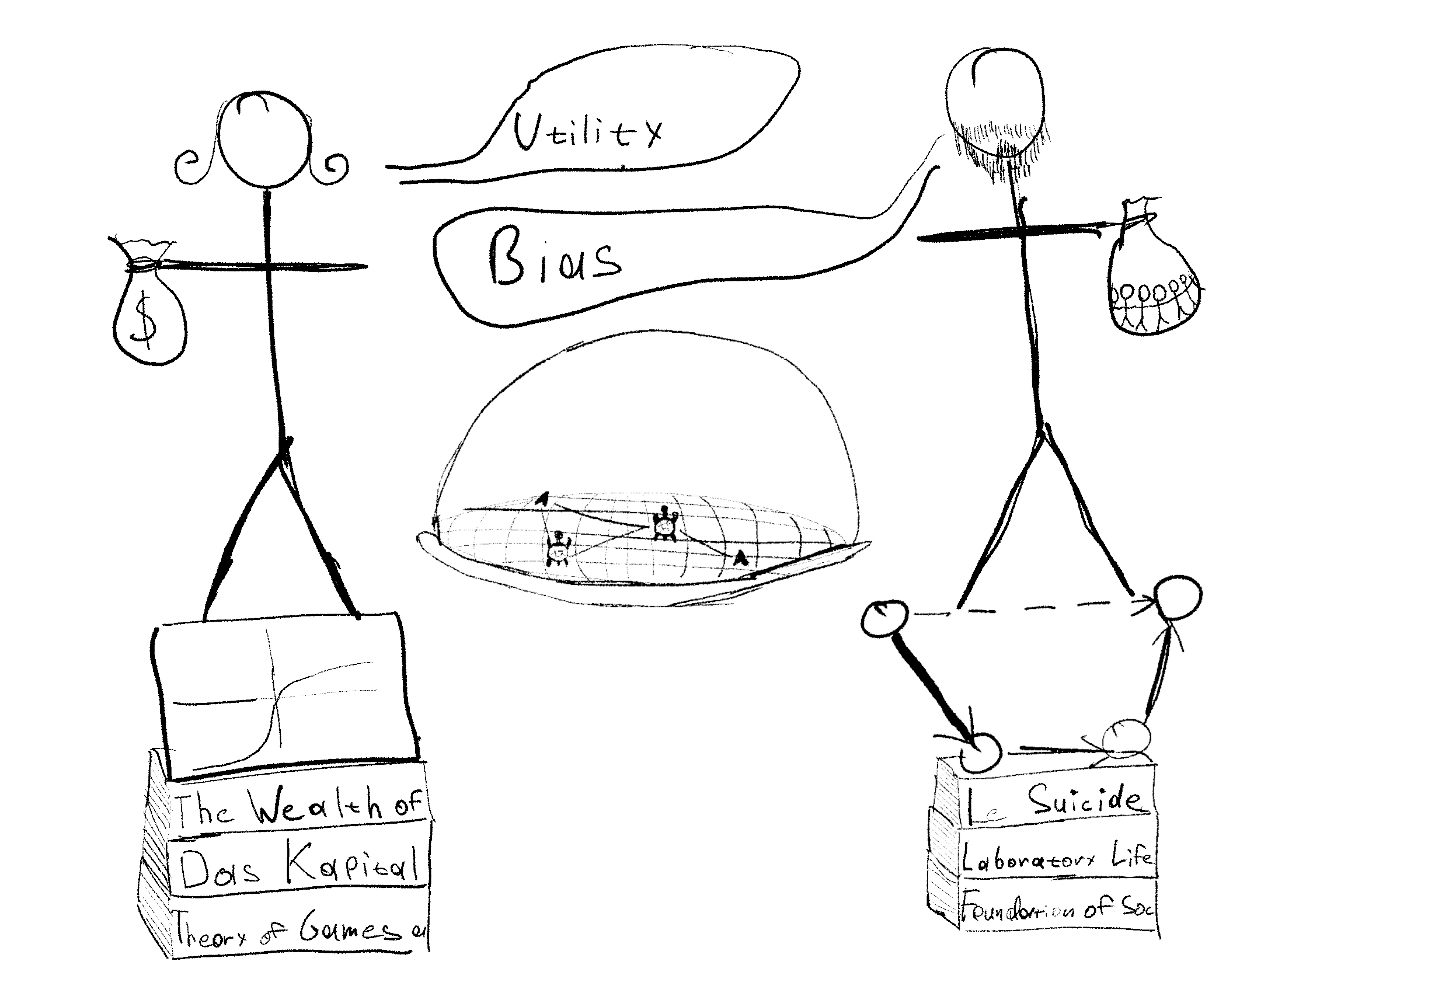 Utility
Bias
$
A
A
The Wealth of
Das Kapital
Theory of Games a
Le Suicide
Laboratory Life
Foundation of Soc